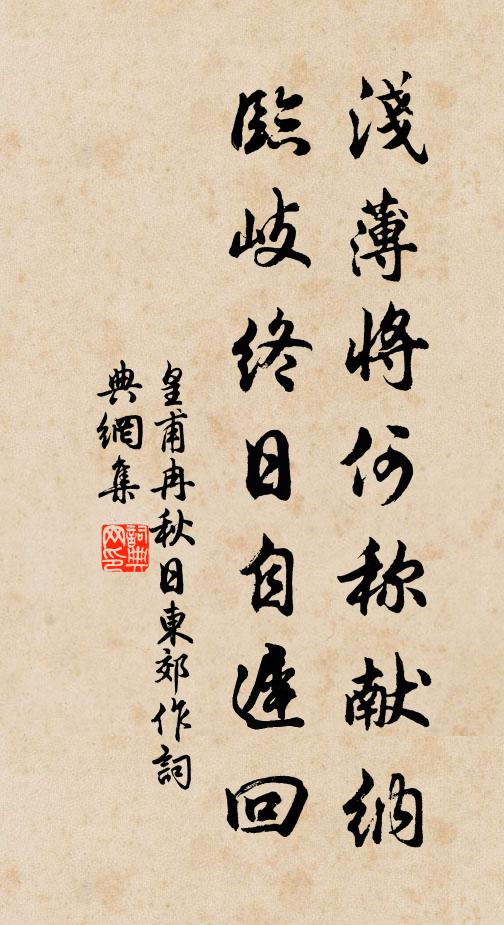 淺薄將何称献纳
臨岐終日自遲回
皇甫冉秋日東郊作詞
典網集
詞典
网印